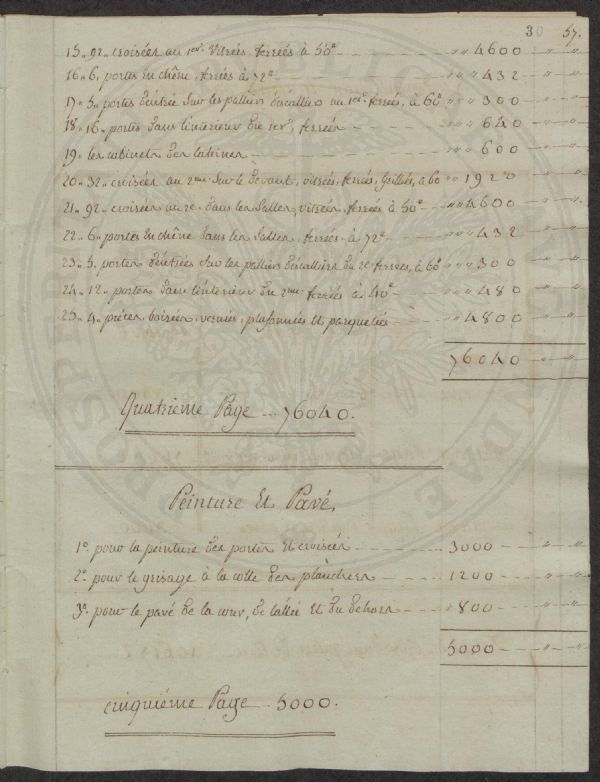 30 57.
15.. 92.. croisées au 1er. vitrées, ferrées à 50# 4600 — " — "
16.. 6.. portes en chêne, ferrées à 72# 432 — " — "
17.. 5.. portes d'entrée sur les palliers d'escalliers au 1er. ferrées, à 60# 300 — " — "
18.. 16.. portes dans l'intérieur du 1er. ferrées 640 — " — "
19.. les cabinets des latrines 600 — " — "
20.. 32.. croisées au 2me. sur le devant, vitrées, ferrées, grillées, à 60 1920 — " — "
21.. 92.. croisées au 2e. dans les salles, vitrées, ferrées à 50# 4600 — " — "
22.. 6.. portes en chêne dans les salles, ferrées à 72# 432 — " — "
23.. 5. portes d'entrées sur les palliers d'escalliers du 2e. ferrées, à 60# 300 — " — "
24.. 12.. portes dans l'intérieur du 2me. ferrées à 40# 480 — " — "
25.. 4.. pièces, boisées, vernies, plafonnées et parquetées 4800 — " — "
76040 — " — "
Quatrième Page — 76040.
Peinture et Pavé,
1o. pour la peinture des portes et croisées 3000 — " — "
2o. pour le grisage à la colle des planchers 1200 — " — "
3o. pour le pavé de la cour, de l'allée et du dehors 800 — " — "
5000 — " — "
cinquiéme Page — 5000.